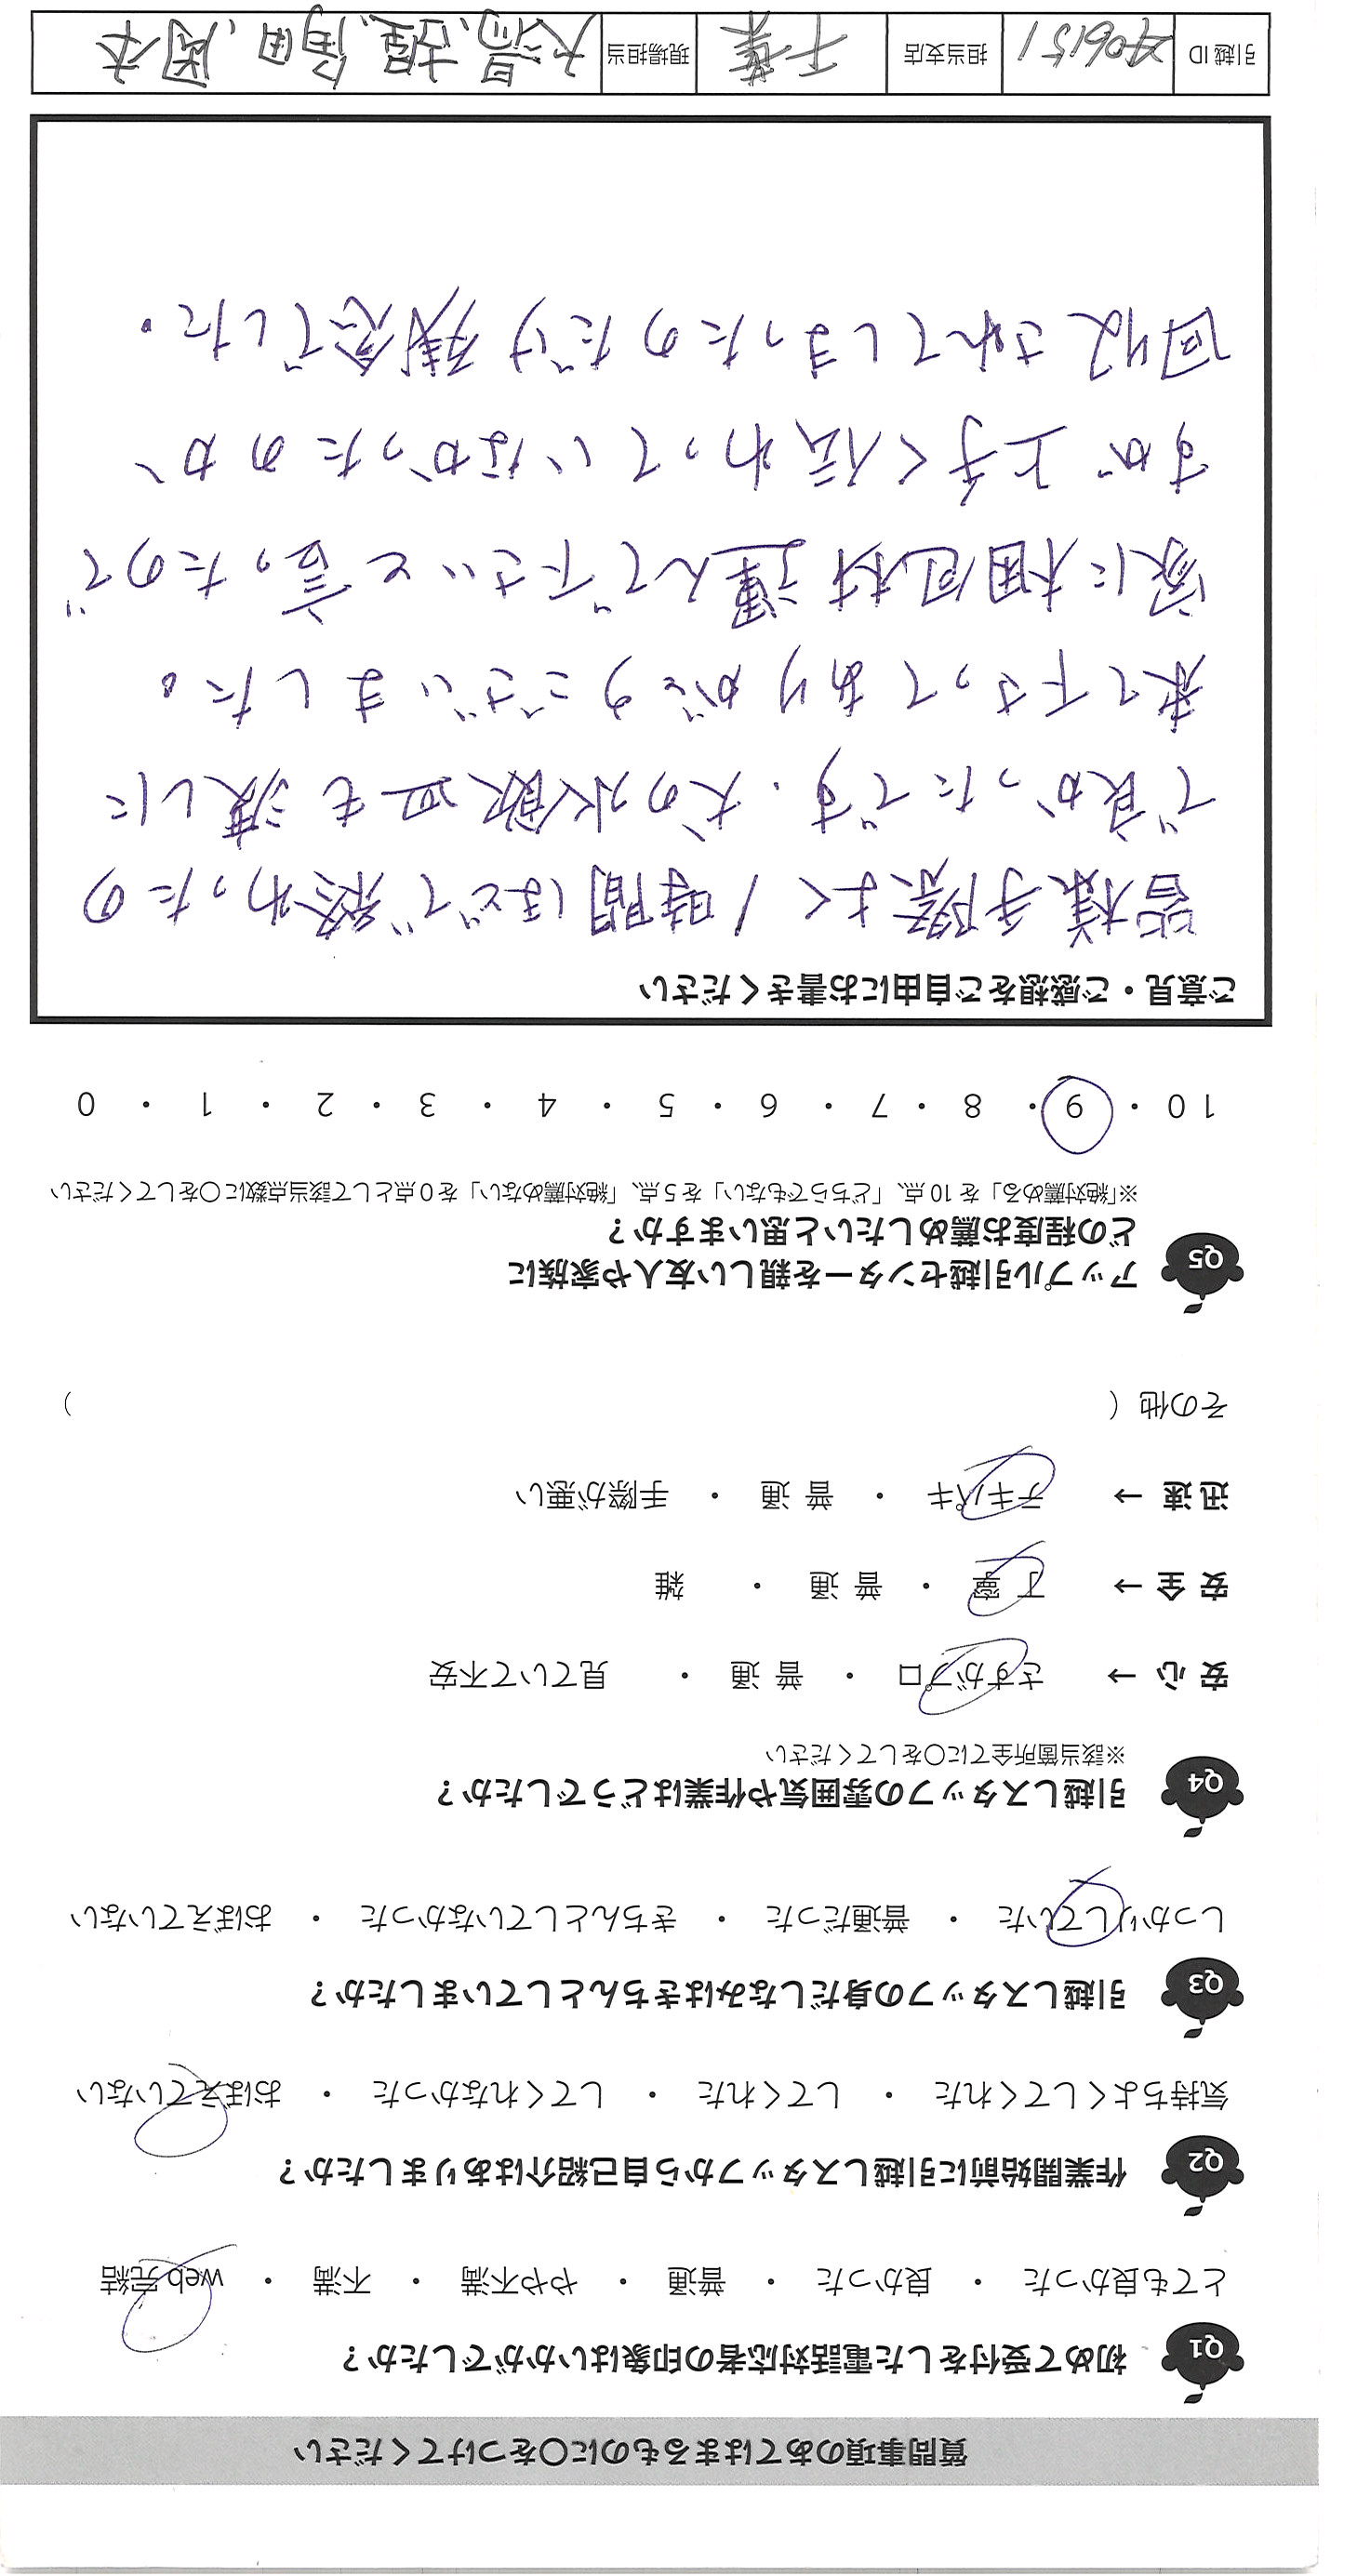 質問事項のあてはまるものに○をつけてください
Q1 初めて受付をした電話対応者の印象はいかがでしたか？
とても良かった ・ 良かった ・ 普通 ・ やや不満 ・ 不満 ・ web完結
Q2 作業開始前に引越しスタッフから自己紹介はありましたか？
気持ちよくしてくれた ・ してくれた ・ してくれなかった ・ おぼえていない
Q3 引越しスタッフの身だしなみはきちんとしていましたか？
しっかりしていた ・ 普通だった ・ きちんとしていなかった ・ おぼえていない
Q4 引越しスタッフの雰囲気や作業はどうでしたか？
※該当箇所全てに○をしてください
安心 → さすがプロ ・ 普通 ・ 見ていて不安
安全 → 丁寧 ・ 普通 ・ 雑
迅速 → テキパキ ・ 普通 ・ 手際が悪い
その他（ ）
Q5 アップル引越センターを親しい友人や家族に
どの程度お薦めしたいと思いますか？
※「絶対薦める」を10点、「どちらでもない」を5点、「絶対薦めない」を0点として該当点数に○をしてください
10 ・ 9 ・ 8 ・ 7 ・ 6 ・ 5 ・ 4 ・ 3 ・ 2 ・ 1 ・ 0
ご意見・ご感想をご自由にお書きください
皆様手際よく1時間ほどで終わったの
で良かったです. 犬の水飲皿も渡しに
来て下さってありがとうございました。
家に梱包材運んで下さいと言ったので
すが上手く伝わっていなかったのか
回収されてしまったのだけ残念でした.
引越ID 2406151 担当支店 千葉 現場担当 大湯、 角田、岡本